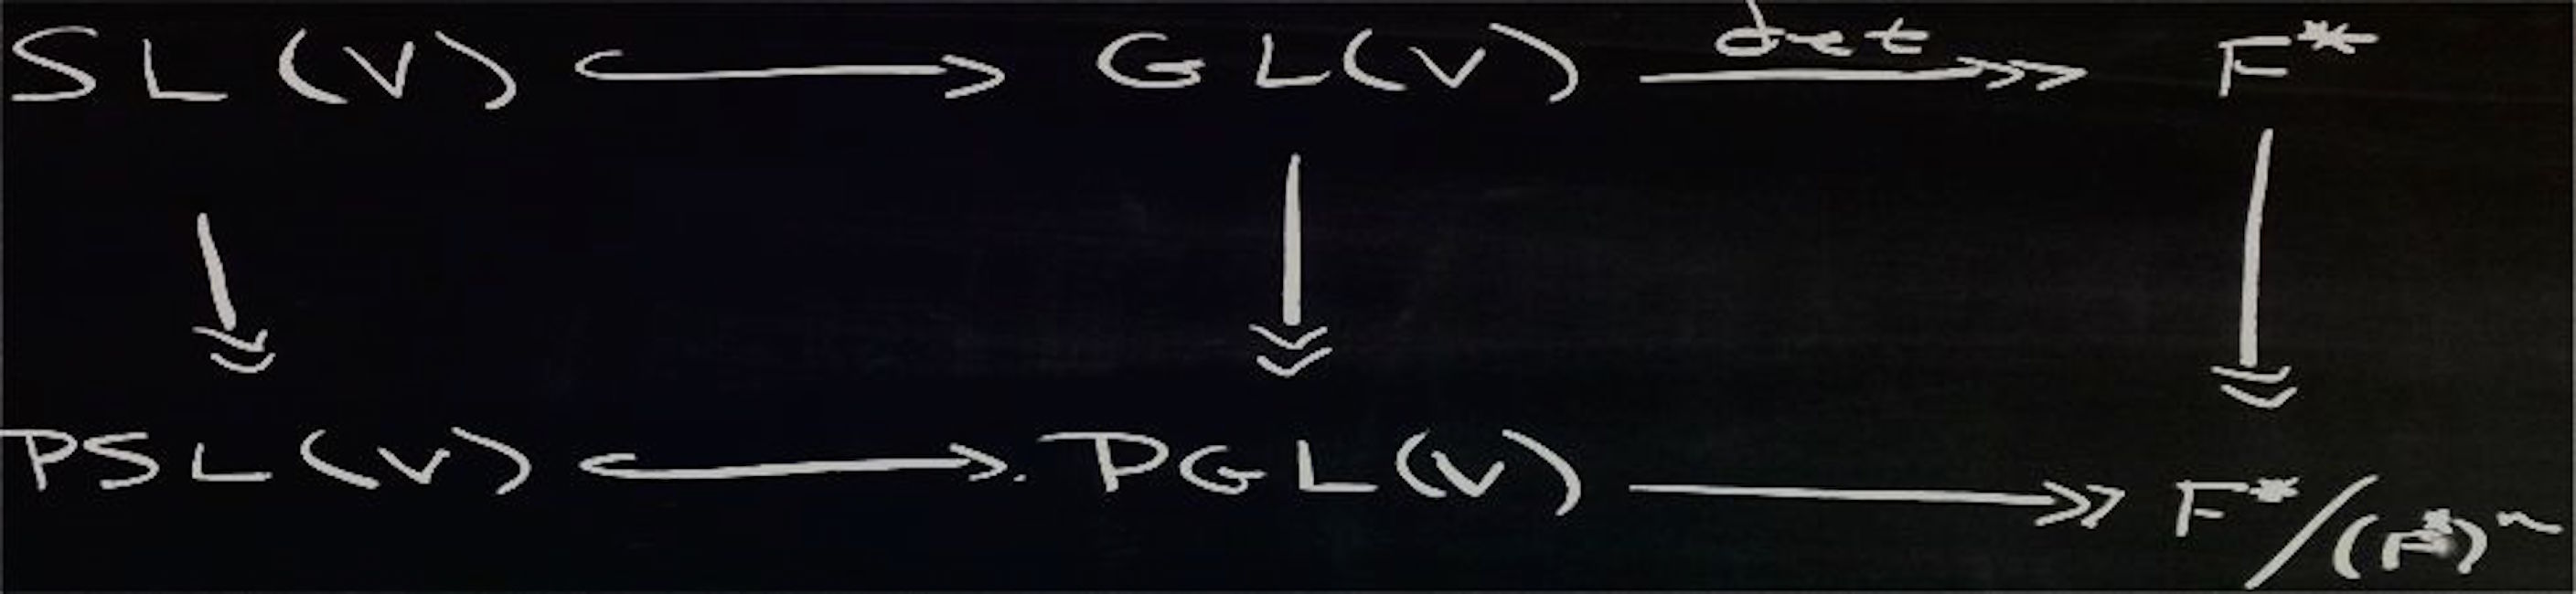 SL(V) ↪ GL(V) det ↠ F*
↓ ↓ ↓
PSL(V) ↪ PGL(V) ↠ F*/(F*)ⁿ